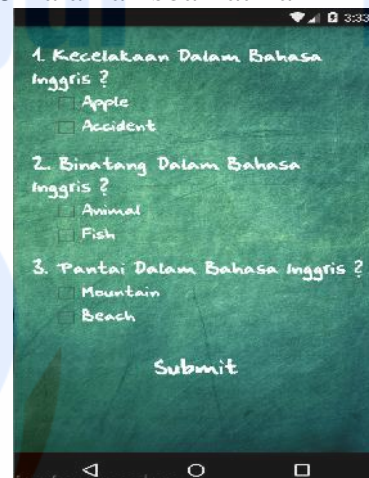 3:33
1. Kecelakaan Dalam Bahasa
Inggris ?
Apple
Accident
2. Binatang Dalam Bahasa
Inggris ?
Animal
Fish
3. Pantai Dalam Bahasa Inggris ?
Mountain
Beach
Submit